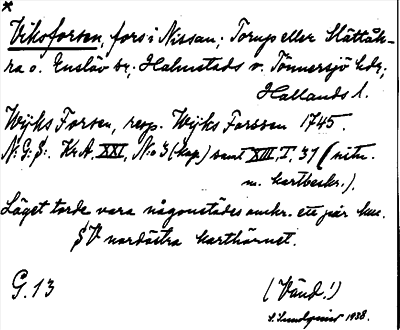 *
Viksforsen, fors i Nissan; Torup eller Slättåk-
ra o. Enslöv sr; Halmstads o. Tönnersjö hdr;
Hallands l.
Wijks Forsen, resp. Wijks Forssen 1745.
N. G. S: Kr.A. XXI, N:o 3 (kop.) samt XIII, I, 31 (ritn.
m. kartbeskr.).
Läget torde vara någonstädes omkr. ett par km.
SV nordöstra karthörnet.
G.13
(Vänd!)
S. Lundqvist 1938.